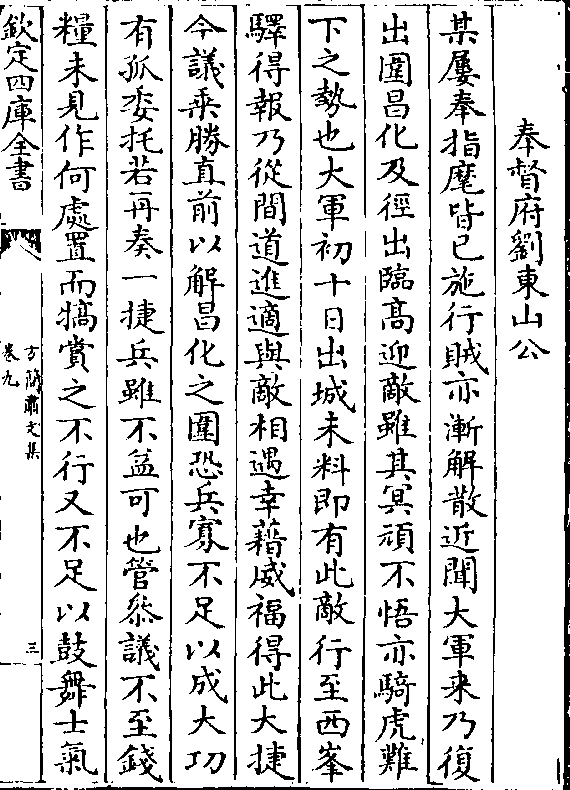 奉督府劉東山公
某屢奉指麾皆已施行賊亦漸解散近聞大軍来乃復
出圍昌化及徑出臨髙迎敵雖其冥頑不悟亦騎虎難
下之勢也大軍初十日出城未料即有此敵行至西峯
驛得報乃從間道進適與敵相遇幸藉威福得此大捷
今議乗勝直前以解昌化之圍恐兵寡不足以成大功
有孤委托若再奏一捷兵雖不益可也管叅議不至錢
糧未見作何處置而犒賞之不行又不足以鼓舞士氣
欽定四庫全書
方簡肅文集
卷九
三